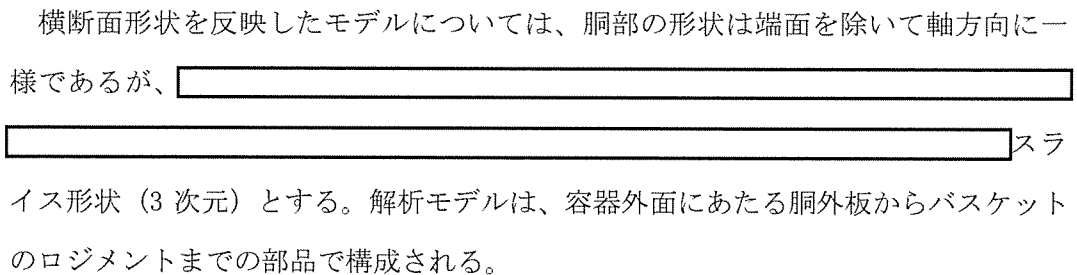 横断面形状を反映したモデルについては、胴部の形状は端面を除いて軸方向に一
様であるが、
スラ
イス形状（3 次元）とする。解析モデルは、容器外面にあたる胴外板からバスケット
のロジメントまでの部品で構成される。